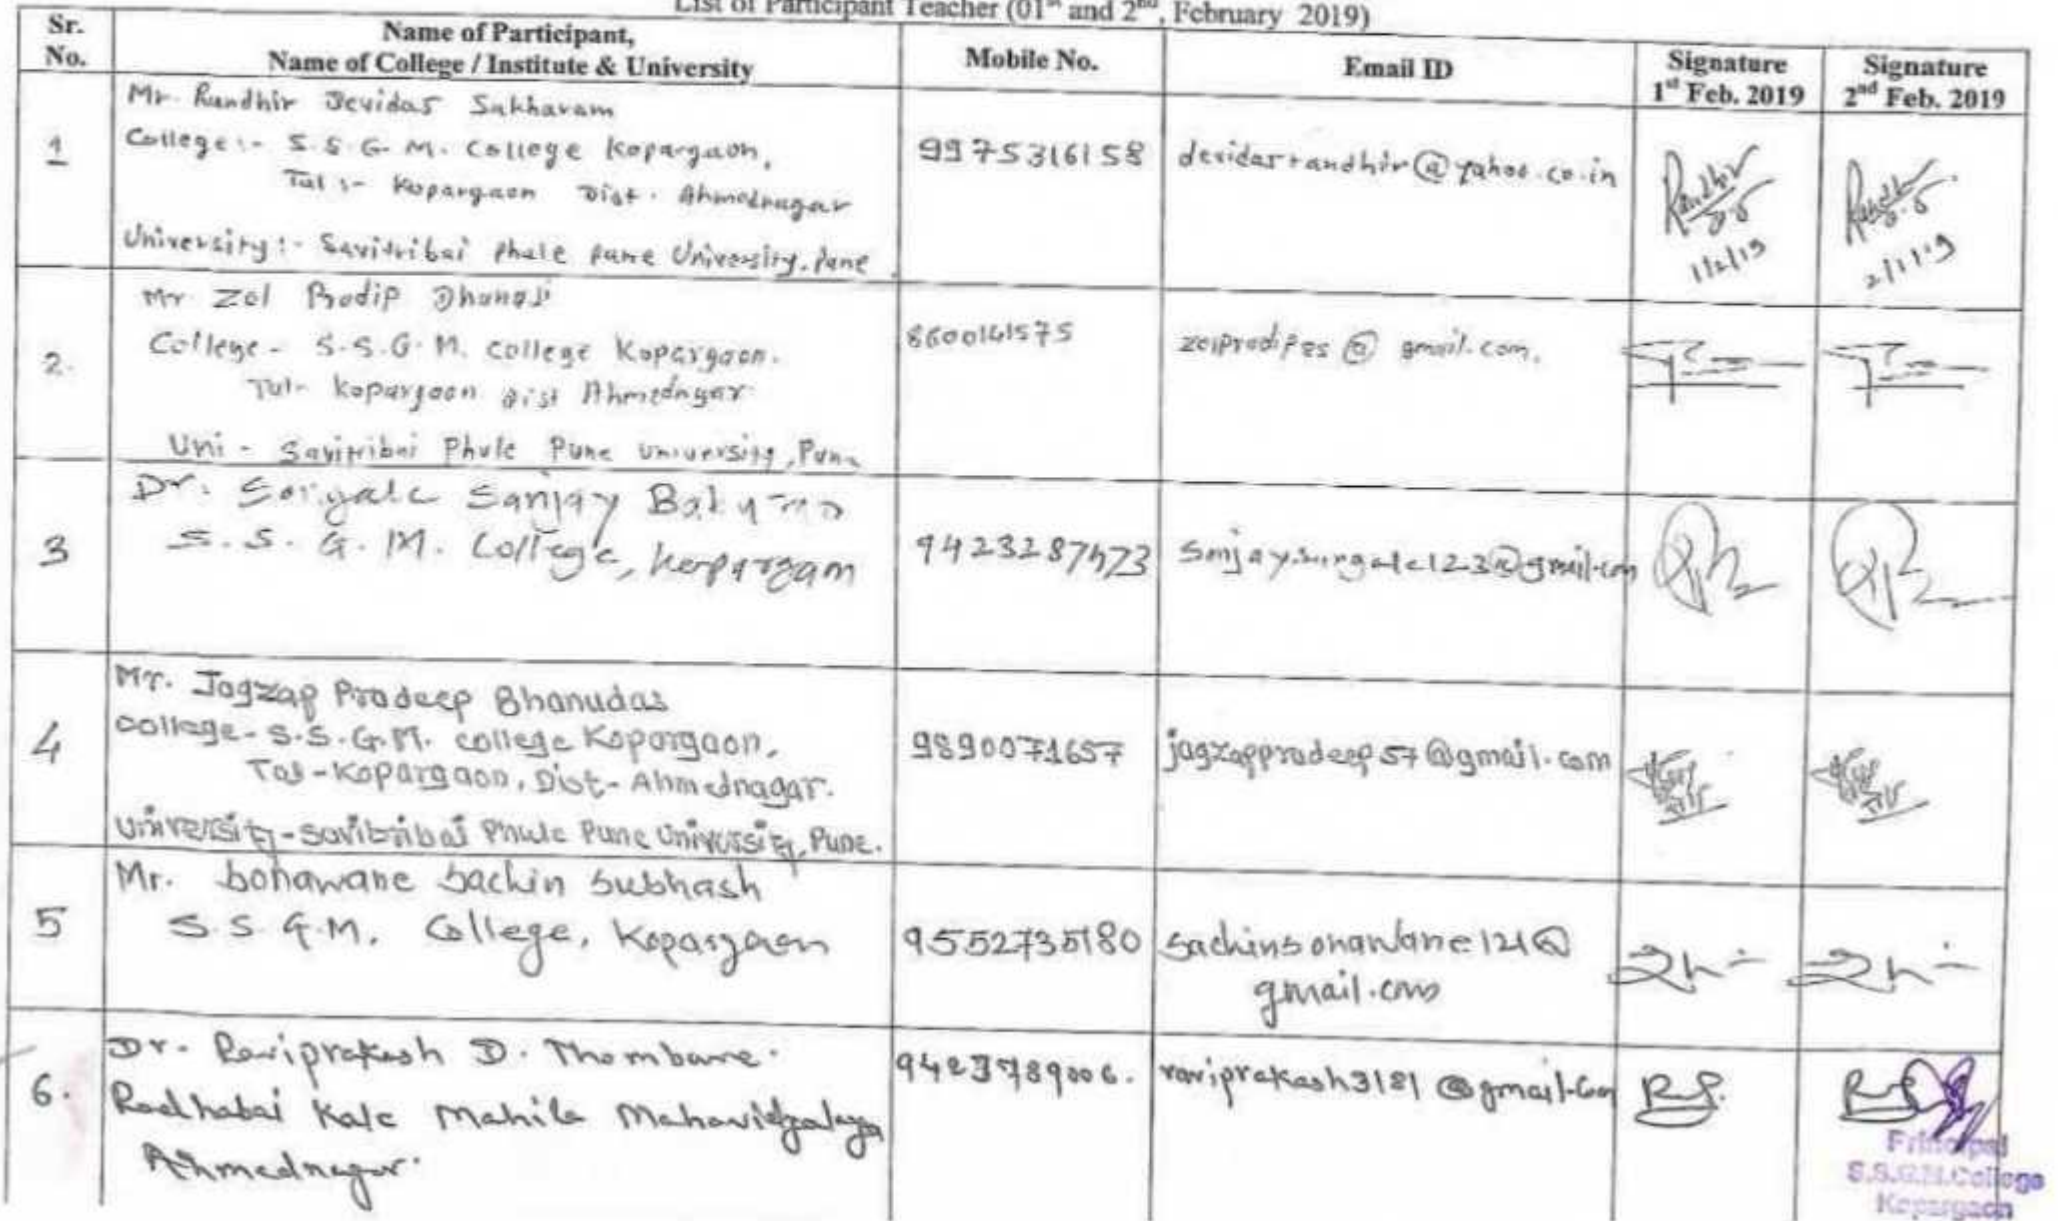 List of Participant Teacher (01st and 2nd, February 2019)
Sr. No.
Name of Participant,
Name of College / Institute & University
Mobile No.
Email ID
Signature
1st Feb. 2019
Signature
2nd Feb. 2019
1
Mr. Randhir Devidas Sakharam
College:- S.S.G.M. College Kopargaon,
Tal :- Kopargaon Dist. Ahmednagar
University:- Savitribai Phule Pune University, Pune
9975316158
devidasrandhir@yahoo.co.in
Randhir
D.S
1/2/19
Randhir
D.S
2/1/19
2.
Mr Zol Pradip Dhanaji
College - S.S.G.M. College Kopargaon.
Tal- Kopargaon Dist Ahmednagar
Uni - Savitribai Phule Pune University, Pune
8600141575
@ gmail.com.
3
Dr. Sanjay
S.S.G.M. College, Kopargaon
9423287473
@gmail.com
4
Mr. Jagzap Pradeep Bhanudas
College- S.S.G.M. college Kopargaon,
Tal-Kopargaon, Dist-Ahmednagar.
University-Savitribai Phule Pune University, Pune.
9890071657
jagzappradeep57@gmail.com
5
Mr. Sonawane Sachin Subhash
S.S.G.M. College, Kopargaon
9552735180
sachinsonawane121@
gmail.com
6.
Dr. Raviprakash D. Thombare.
Radhabai Kale Mahila Mahavidyalaya
Ahmednagar.
9423789006.
raviprakash3181@gmail.com
Principal
S.S.G.M.College
Kopargaon